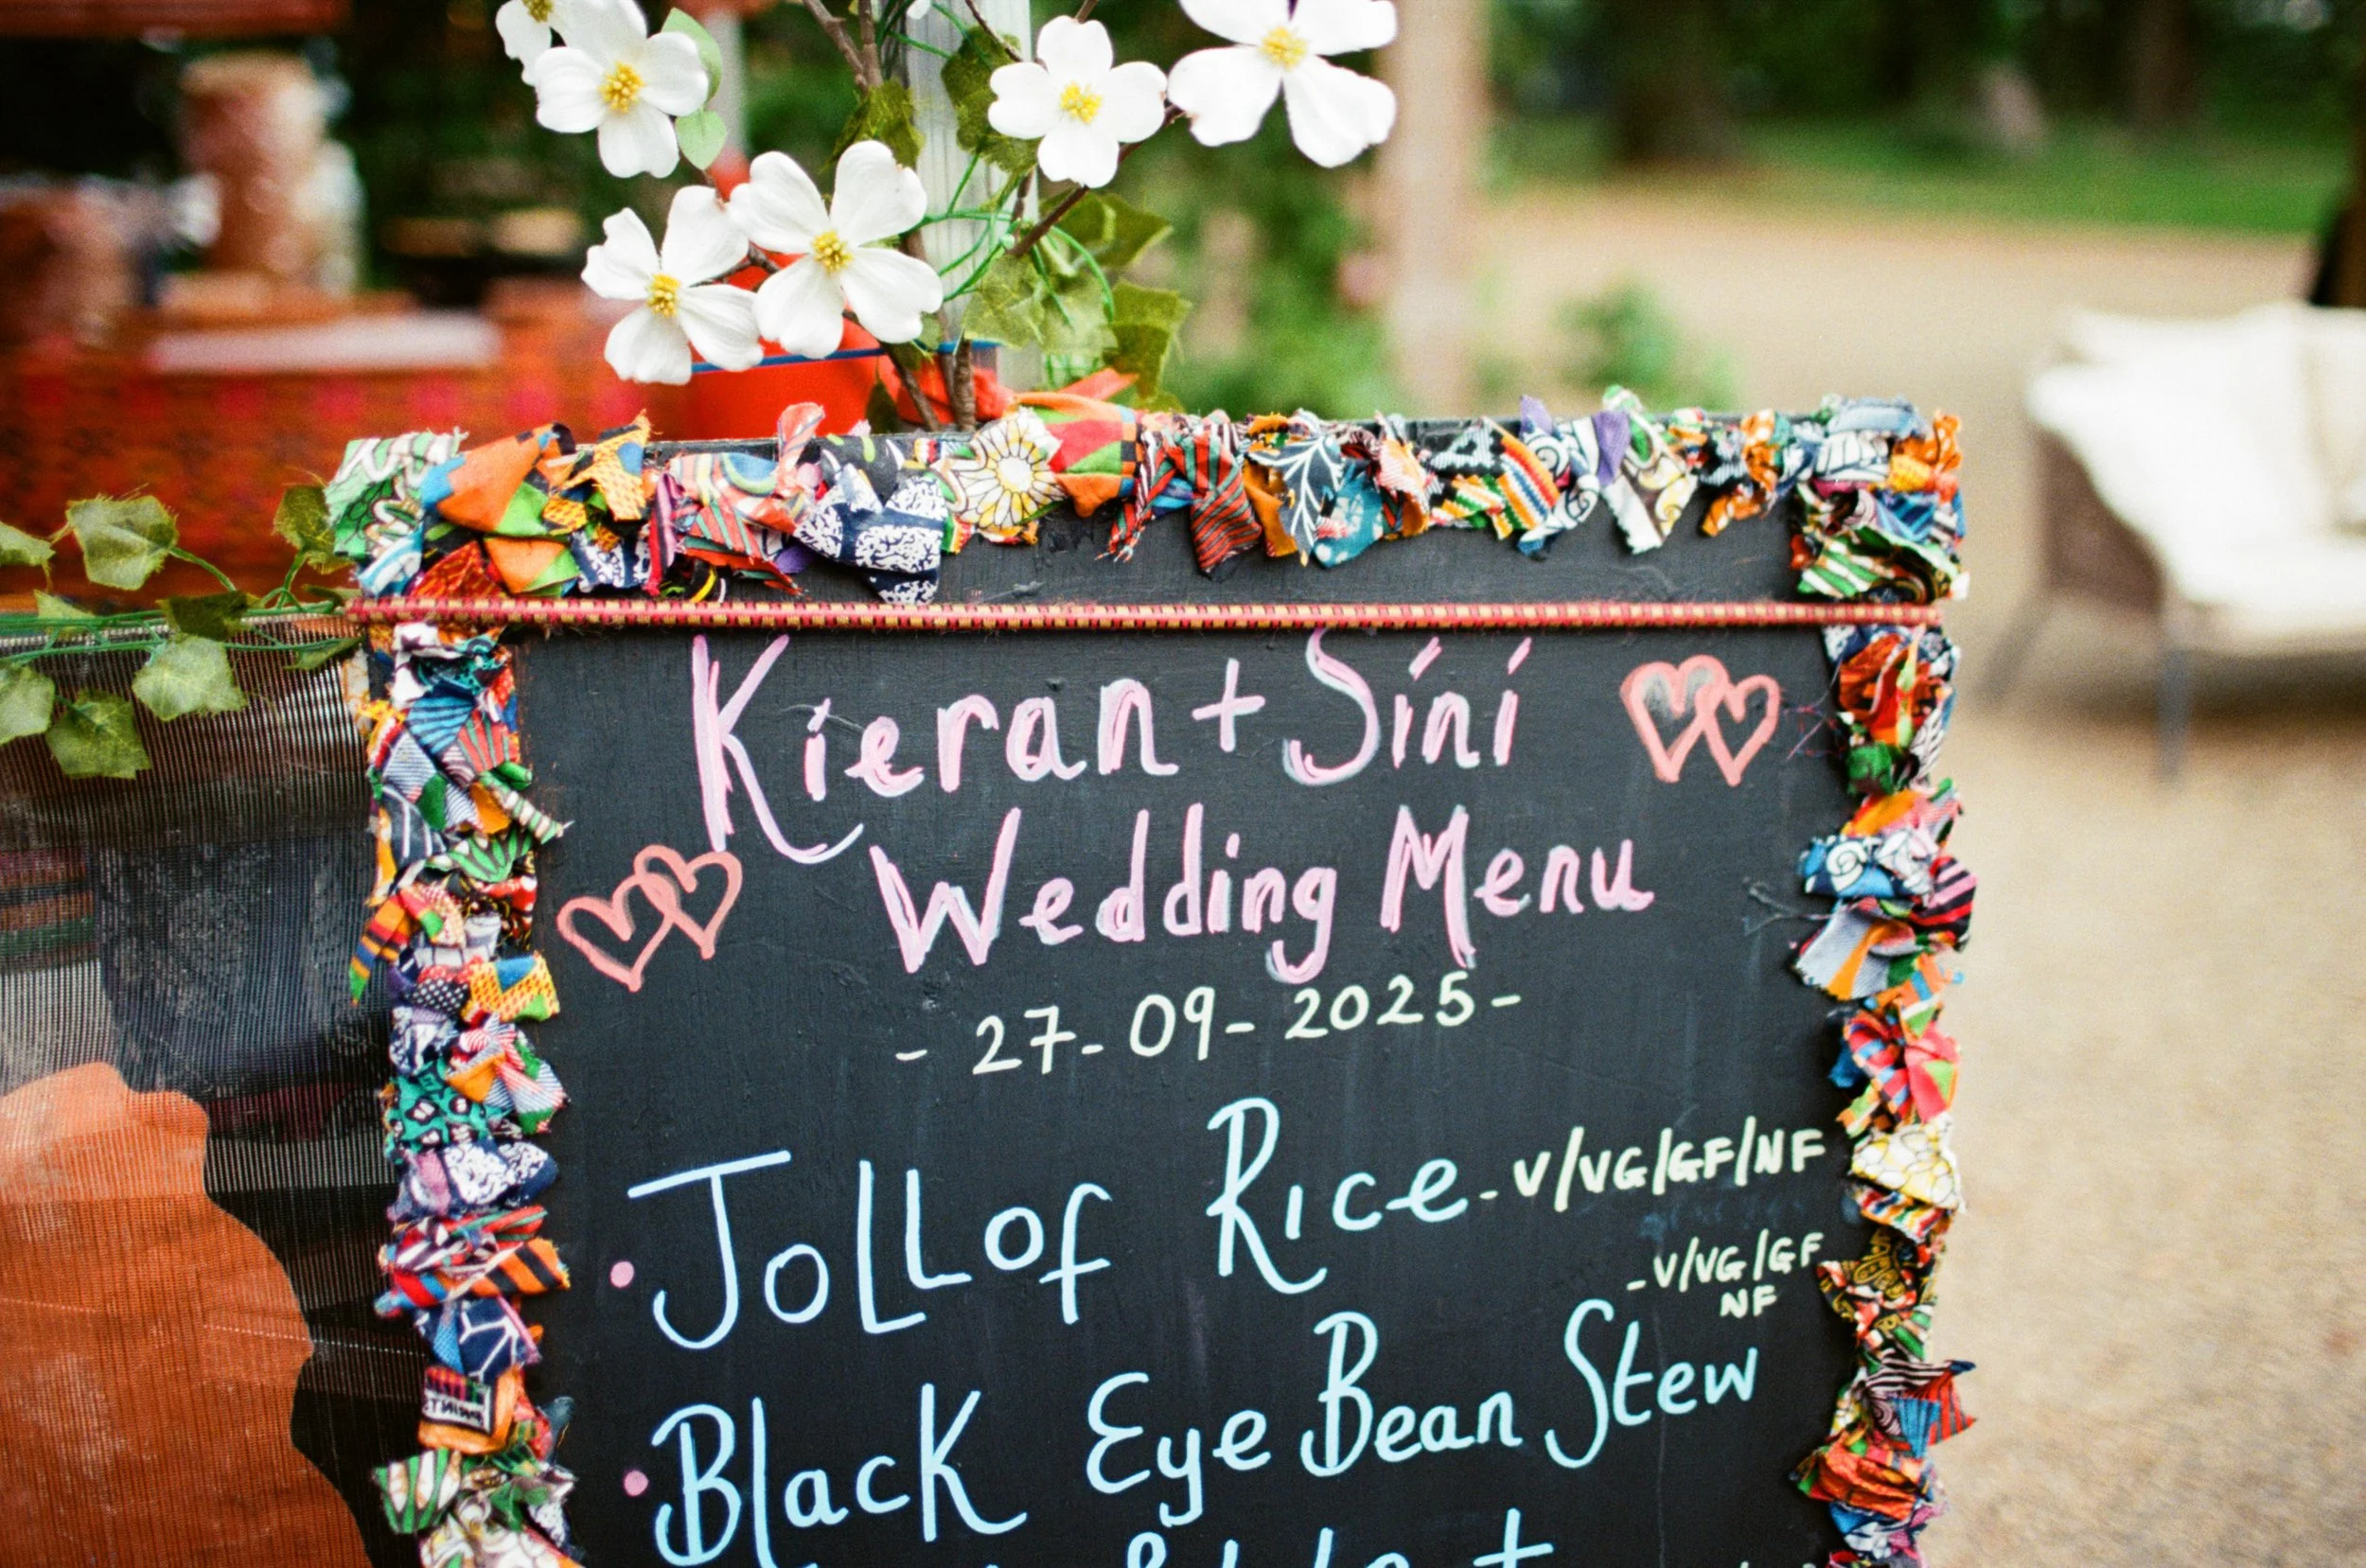 Kieran + Sini
Wedding Menu
- 27-09-2025-
• Jollof Rice - V/VG/GF/NF
- V/VG/GF
NF
• Black Eye Bean Stew